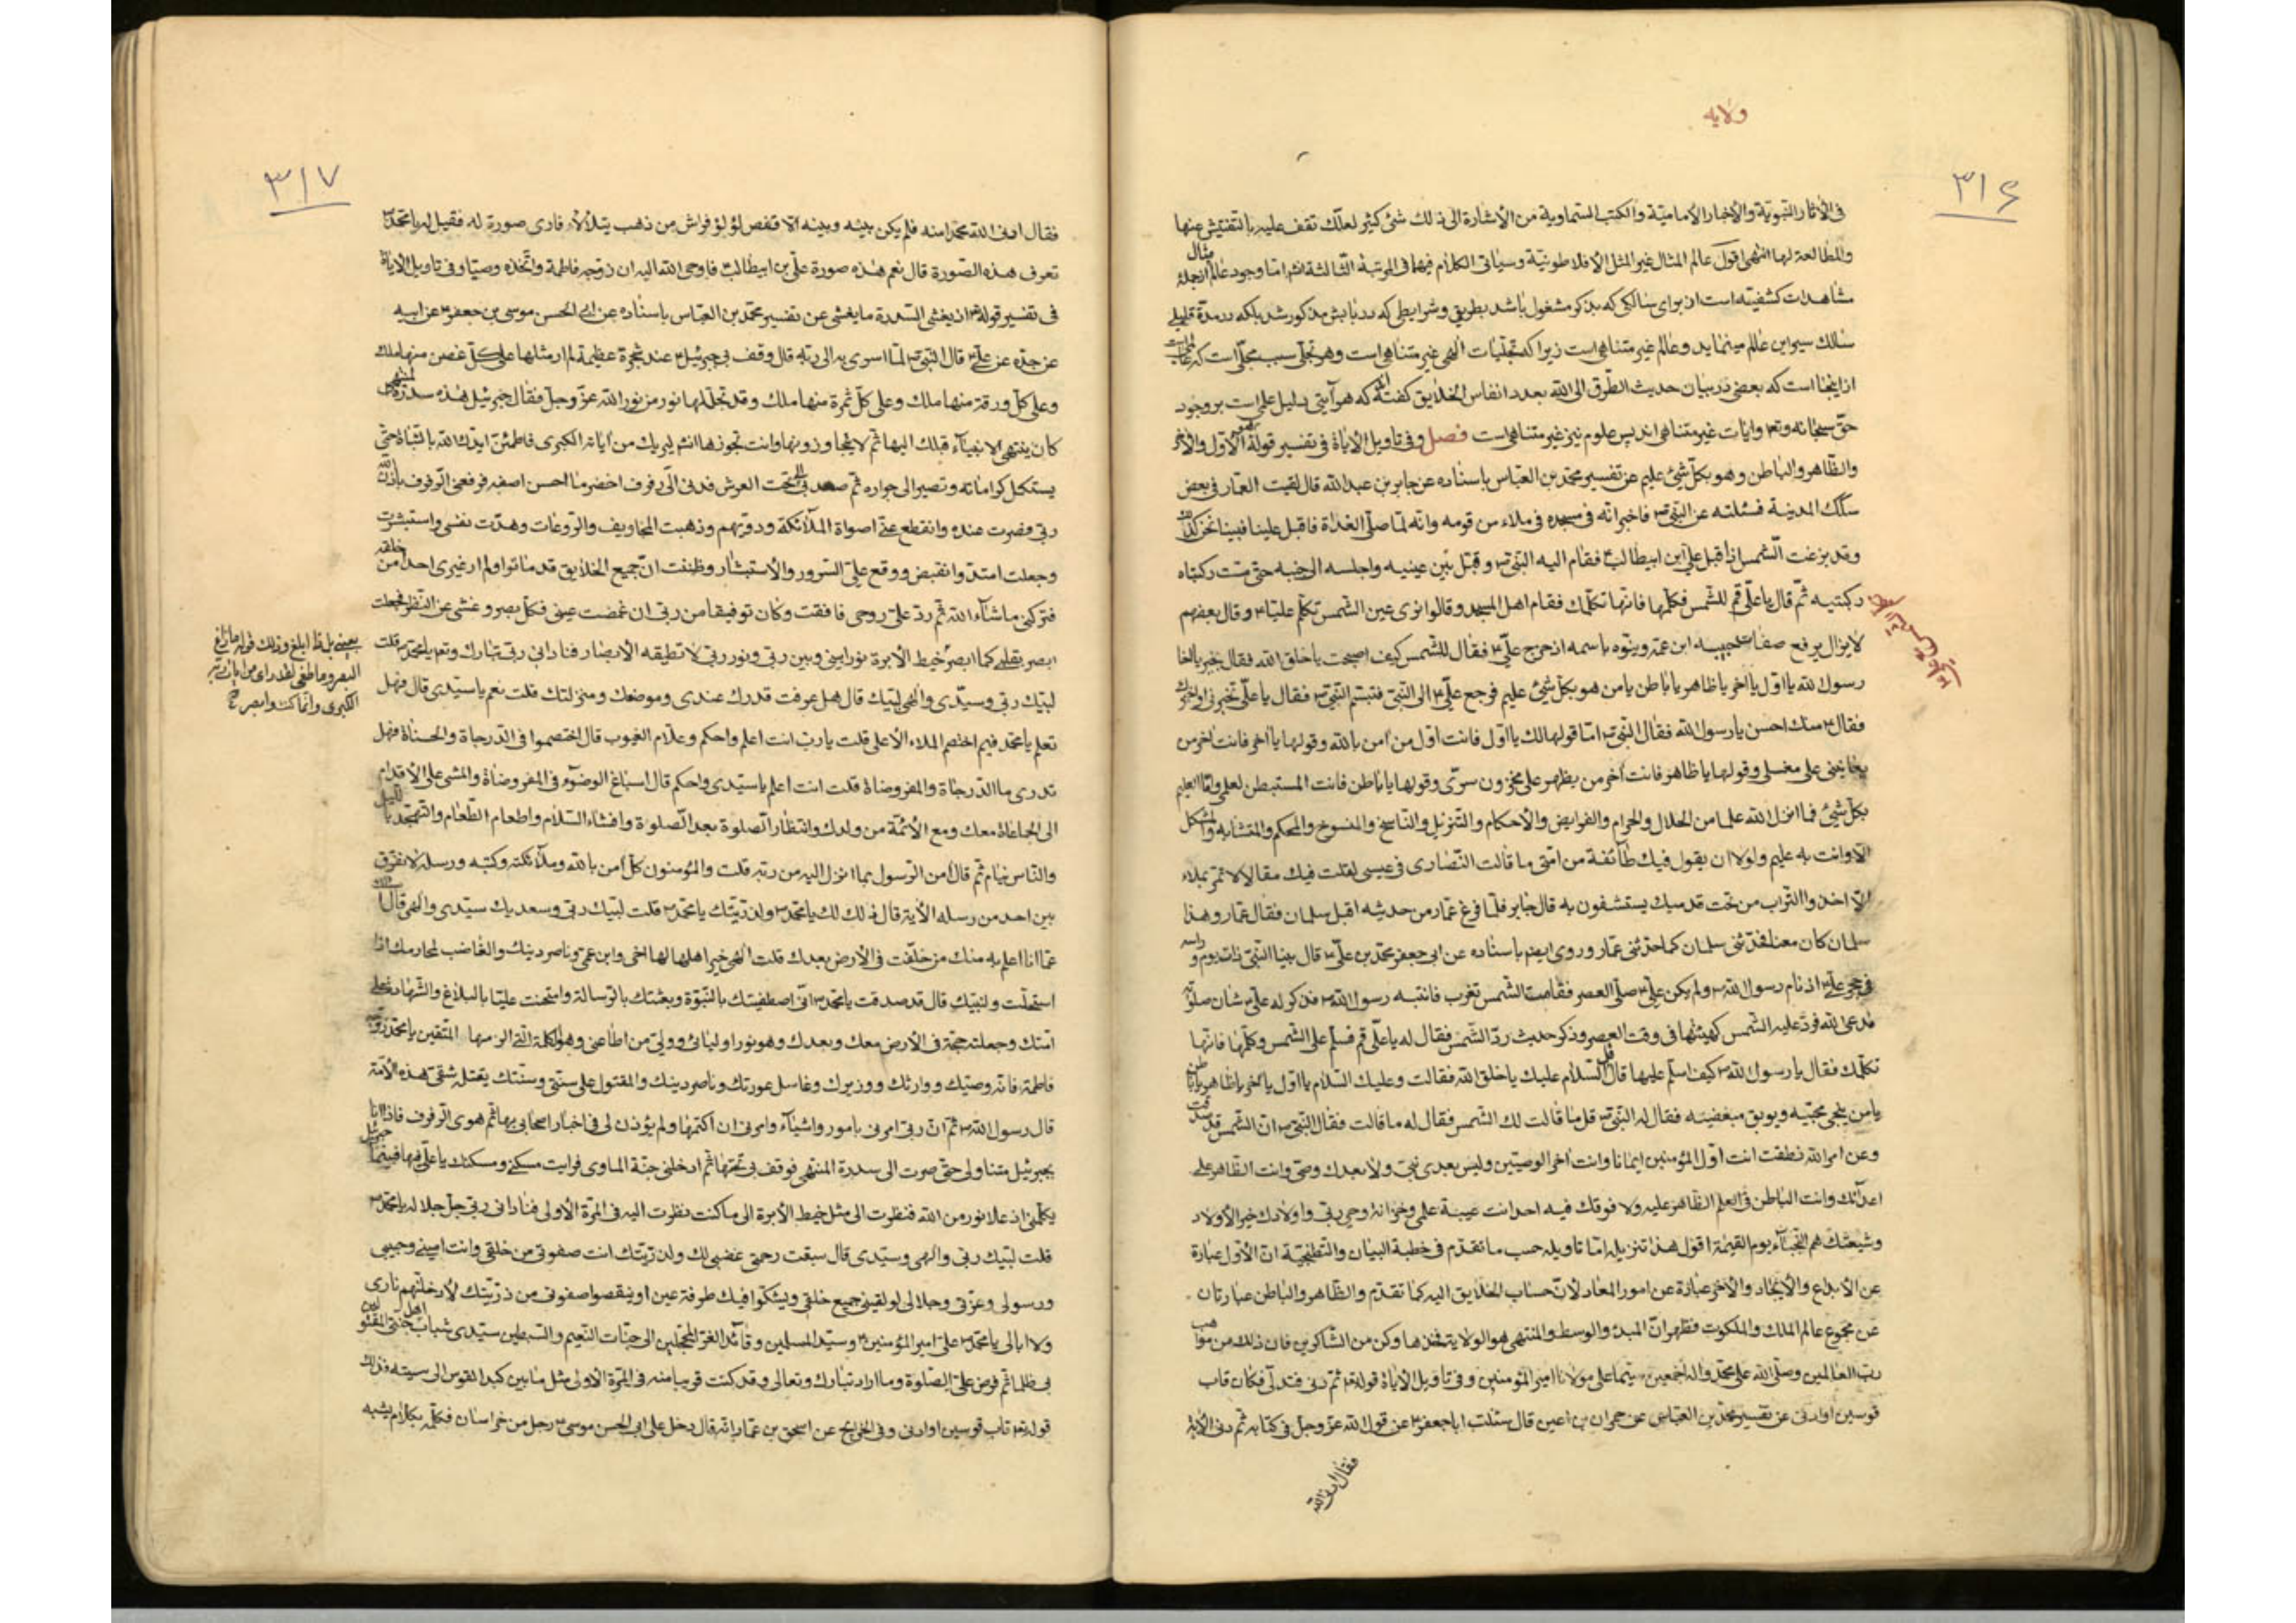 ولایه
۳۱۶
فى الآثار النبوية والأخبار الأمامية والكتب السماوية من الأشارة الى ذلك شئ كثير لعلك تقف عليه بالتفتيش عنها
والمطالعة لها انتهى اقول عالم المثال غير المثل الأفلاطونية وسياتى الكلام فيها فى المرتبة الثالثة انشا اما وجود عالم مثال ازجمله
مشاهدات كشفيه است ان براى سالكى كه بذكر مشغول باشد بطريق وشرايطى كه در بابش مذكور شد بلكه در مدة قليلى
سالك سير اين عالم مينمايد وعالم غير متناهى است زيرا كه تجليات الهى غير متناهى است وهر تجلى سبب مجلى است كه
از اينجا است كه بعضى در بيان حديث الطرق الى الله بعدد انفاس الخلايق كفته كه هر آيتى دليل على است بر وجود
حق سبحانه وتعه وايات غير متناهى اند پس علوم نيز غير متناهى است فصل وفى تاويل الاياة فى تفسير قوله هو الأول والأخر
والظاهر والباطن وهو بكل شئ عليم عن تفسير محمد بن العباس باسناده عن جابر بن عبد الله قال لقيت العمار فى بعض
سكك المدينة فسئلته عن النبى ص فاخبر انه فى مسجده فى ملاء من قومه وانه لما صلى الغداة فاقبل علينا فبينا نحن كذلك
وقد بزغت الشمس اذ اقبل على ابن ابيطالب فقام اليه النبى ص وقبل بين عينيه واجلسه الى جنبه حتى مست ركبتاه
ركبتيه ثم قال يا على قم للشمس فكلمها فانها تكلمك فقام اهل المسجد وقالوا نرى عين الشمس تكلم عليا وقال بعضهم
لا يزال يرفع حبيبه ابن عمه وينوه باسمه اذ خرج على فقال للشمس كيف اصبحت يا خلق الله فقال بخير يا اخا
رسول الله يا اول يا اخر يا ظاهر يا باطن يا من هو بكل شئ عليم فرجع على الى النبى فتبسم النبى فقال يا على تخبرنى او اخبرك
فقال منك احسن يا رسول الله فقال النبى اما قولها لك يا اول فانت اول من امن بالله وقولها يا اخر فانت اخر من
يعاينى على مغسلى وقولها يا ظاهر فانت اخر من يظهر على مخزون سرى وقولها يا باطن فانت المستبطن لعلمى واما العليم
بكل شئ فما انزل الله علما من الحلال والحرام والفرايض والأحكام والتنزيل والناسخ والمنسوخ والمحكم والمتشابه والمشكل
الا وانت به عليم ولولا ان يقول فيك طائفة من امتى ما قالت النصارى فى عيسى لقلت فيك مقالا لا تمر بملاء
الا اخذوا التراب من تحت قدميك يستشفون به قال جابر فلما فرغ عمار من حديثه اقبل سلمان فقال عمار وهذا
سلمان كان معنا فحدثنى سلمان كما حدثنى عمار وروى ايضا باسناده عن ابى جعفر محمد بن على قال بينا النبى ذات يوم وراسه
فى حجر على اذ نام رسول الله ولم يكن على صلى العصر فقامت الشمس تغرب فانتبه رسول الله فذكر له على شان صلوته
فدعى الله فرد عليه الشمس كهيئتها فى وقت العصر وذكر حديث رد الشمس فقال له يا على قم فسلم على الشمس وكلمها فانها
تكلمك فقال يا رسول الله كيف اسلم عليها قال قل السلام عليك يا خلق الله فقالت وعليك السلام يا اول يا اخر يا ظاهر يا باطن
يا من ينجى محبيه ويوبق مبغضيه فقال له النبى قل ما قالت لك الشمس فقال له ما قالت فقال النبى ان الشمس قد صدقت
وعن امر الله نطقت انت اول المؤمنين ايمانا وانت اخر الوصيين وليس بعدى نبى ولا بعدك وصى وانت الظاهر على
اعدائك وانت الباطن فى العلم الظاهر عليه ولا فوقك فيه احد انت عيبة علمى وخزانة وحى ربى واولادك خير الأولاد
وشيعتك هم النجباء يوم القيمة اقول هذا تنزيله اما تاويله حسب ما تقدم فى خطبة البيان والتطنجية ان الأول عبارة
عن الأبداع والأيجاد والأخر عبارة عن امور المعاد لأن حساب الخلايق اليه كما تقدم والظاهر والباطن عبارتان
عن مجموع عالم الملك والملكوت فظهر ان المبدء والوسط والمنتهى هو الولاية فخذها وكن من الشاكرين فان ذلك من مواهب
رب العالمين وصلى الله على محمد واله اجمعين سيما على مولانا امير المؤمنين وفى تاويل الاياة قوله ثم دنى فتدلى فكان قاب
قوسين او ادنى عن تفسير محمد بن العباس عن حمران بن اعين قال سئلت ابا جعفر عن قول الله عز وجل فى كتابه ثم دنى الاية
فقال ادنى الله
۳۱۷
فقال ادنى الله محمدا منه فلم يكن بينه وبينه الا قفص لؤلؤ فراش من ذهب يتلألأ فارى صورة له فقيل له يا محمد
تعرف هذه الصورة قال نعم هذه صورة على بن ابيطالب فاوحى الله اليه ان زوجه فاطمة واتخذه وصيا وفى تاويل الاياة
فى تفسير قوله اذ يغشى السدرة ما يغشى عن تفسير محمد بن العباس باسناده عن ابى الحسن موسى بن جعفر عن ابيه
عن جده عن على قال النبى لما اسرى به الى ربه قال وقف بى جبرئيل عند شجرة عظيمة لم ار مثلها على كل غصن منها ملك
وعلى كل ورقة منها ملك وعلى كل ثمرة منها ملك وقد تجللها نور من نور الله عز وجل فقال جبرئيل هذه سدرة المنتهى
كان ينتهى الأنبياء قبلك اليها ثم لا يتجاوزونها وانت تجوزها انشا ليريك من اياته الكبرى فاطمئن ايدك الله بالثباة حتى
يستكمل كراماته وتصير الى جواره ثم صعد بى الى تحت العرش فدنى الى رفرف اخضر ما احسن اصفه فرفعنى الرفرف باذن الله
ربى فصرت عنده وانقطع عنى اصواة الملائكة ودويهم وذهبت المخاويف والروعات وهدت نفسى واستبشرت
وجعلت امتد وانقبض ووقع على السرور والأستبشار وظننت ان جميع الخلايق قد ماتوا ولم ار غيرى احدا من خلقه
فتركنى ما شاء الله ثم رد على روحى فافقت وكان توفيقا من ربى ان غمضت عينى فكل بصرى وغشى عن النظر فجعلت
ابصر بقلبى كما ابصر خيط الأبرة نورا بينى وبين ربى ونور ربى لا تطيقه الأبصار فنادانى ربى تبارك وتعه يا محمد قلت
لبيك ربى وسيدى والهى لبيك قال هل عرفت قدرك عندى وموضعك ومنزلتك قلت نعم يا سيدى قال فهل
تعلم يا محمد فيم اختصم الملاء الأعلى قلت يا رب انت اعلم واحكم وعلام الغيوب قال اختصموا فى الدرجاة والحسناة فهل
تدرى ما الدرجاة والمفروضاة قلت انت اعلم يا سيدى واحكم قال اسباغ الوضوء فى المفروضاة والمشى على الأقدام
الى الجماعاة معك ومع الأئمة من ولدك وانتظار الصلوة بعد الصلوة وافشاء السلام واطعام الطعام والتهجد بالليل
والناس نيام ثم قال امن الرسول بما انزل اليه من ربه قلت والمؤمنون كل امن بالله وملائكته وكتبه ورسله لا نفرق
بين احد من رسله الأية قال ذلك لك يا محمد ولذريتك يا محمد قلت لبيك ربى وسعديك سيدى والهى قال
عما انا اعلم به منك من خلفت فى الأرض بعدك قلت الهى خير اهلها لها اخى وابن عمى وناصر دينك والغاضب لمحارمك اذا
استحلت ولنبيك قال قد صدقت يا محمد انى اصطفيتك بالنبوة وبعثتك بالرسالة وامتحنت عليا بالبلاغ والشهادة على
امتك وجعلته حجة فى الأرض معك وبعدك وهو نور اوليائى وولى من اطاعنى وهو الكلمة التى الزمها المتقين يا محمد زوجه
فاطمة فانه وصيك ووارثك ووزيرك وغاسل عورتك وناصر دينك والمقتول على سنتى وسنتك يقتله شقى هذه الأمة
قال رسول الله ثم ان ربى امرنى بامور واشياء وامرنى ان اكتمها ولم يؤذن لى فى اخبار اصحابى بها ثم هوى الرفرف فاذا انا
بجبرئيل متناولى حتى صرت الى سدرة المنتهى فوقف بى تحتها ثم ادخلنى جنة الماوى فرايت مسكنى ومسكنك يا على فيها فبينما جبرئيل
يكلمنى اذ علا نور من الله فنظرت الى مثل خيط الأبرة الى ما كنت نظرت اليه فى المرة الأولى فنادانى ربى جل جلاله يا محمد
قلت لبيك ربى والهى وسيدى قال سبقت رحمتى غضبى لك ولذريتك انت صفوتى من خلقى وانت امينى وحبيبى
ورسولى وعزتى وجلالى لو لقينى جميع خلقى ويشكوا فيك طرفة عين او ينقصوا صفوتى من ذريتك لأدخلنهم نارى
ولا ابالى يا محمد على امير المؤمنين وسيد المسلمين وقائد الغر المحجلين الى جنات النعيم والسبطين سيدى شباب اهل جنتى المقتولين
بى ظلما ثم فرض على الصلوة وما اراد تبارك وتعالى وقد كنت قريبا منه فى المرة الأولى مثل ما بين كبد القوس الى سيته فذلك
قوله تعه قاب قوسين او ادنى وفى الخرايج عن اسحق بن عمار انه قال دخل على ابى الحسن موسى رجل من خراسان فكلمه بكلام يشبه
بعينى بل ابلغ وذلك قوله ما زاغ
البصر وما طغى لقد راى من ايات ربه
الكبرى وانما كنت ابصر